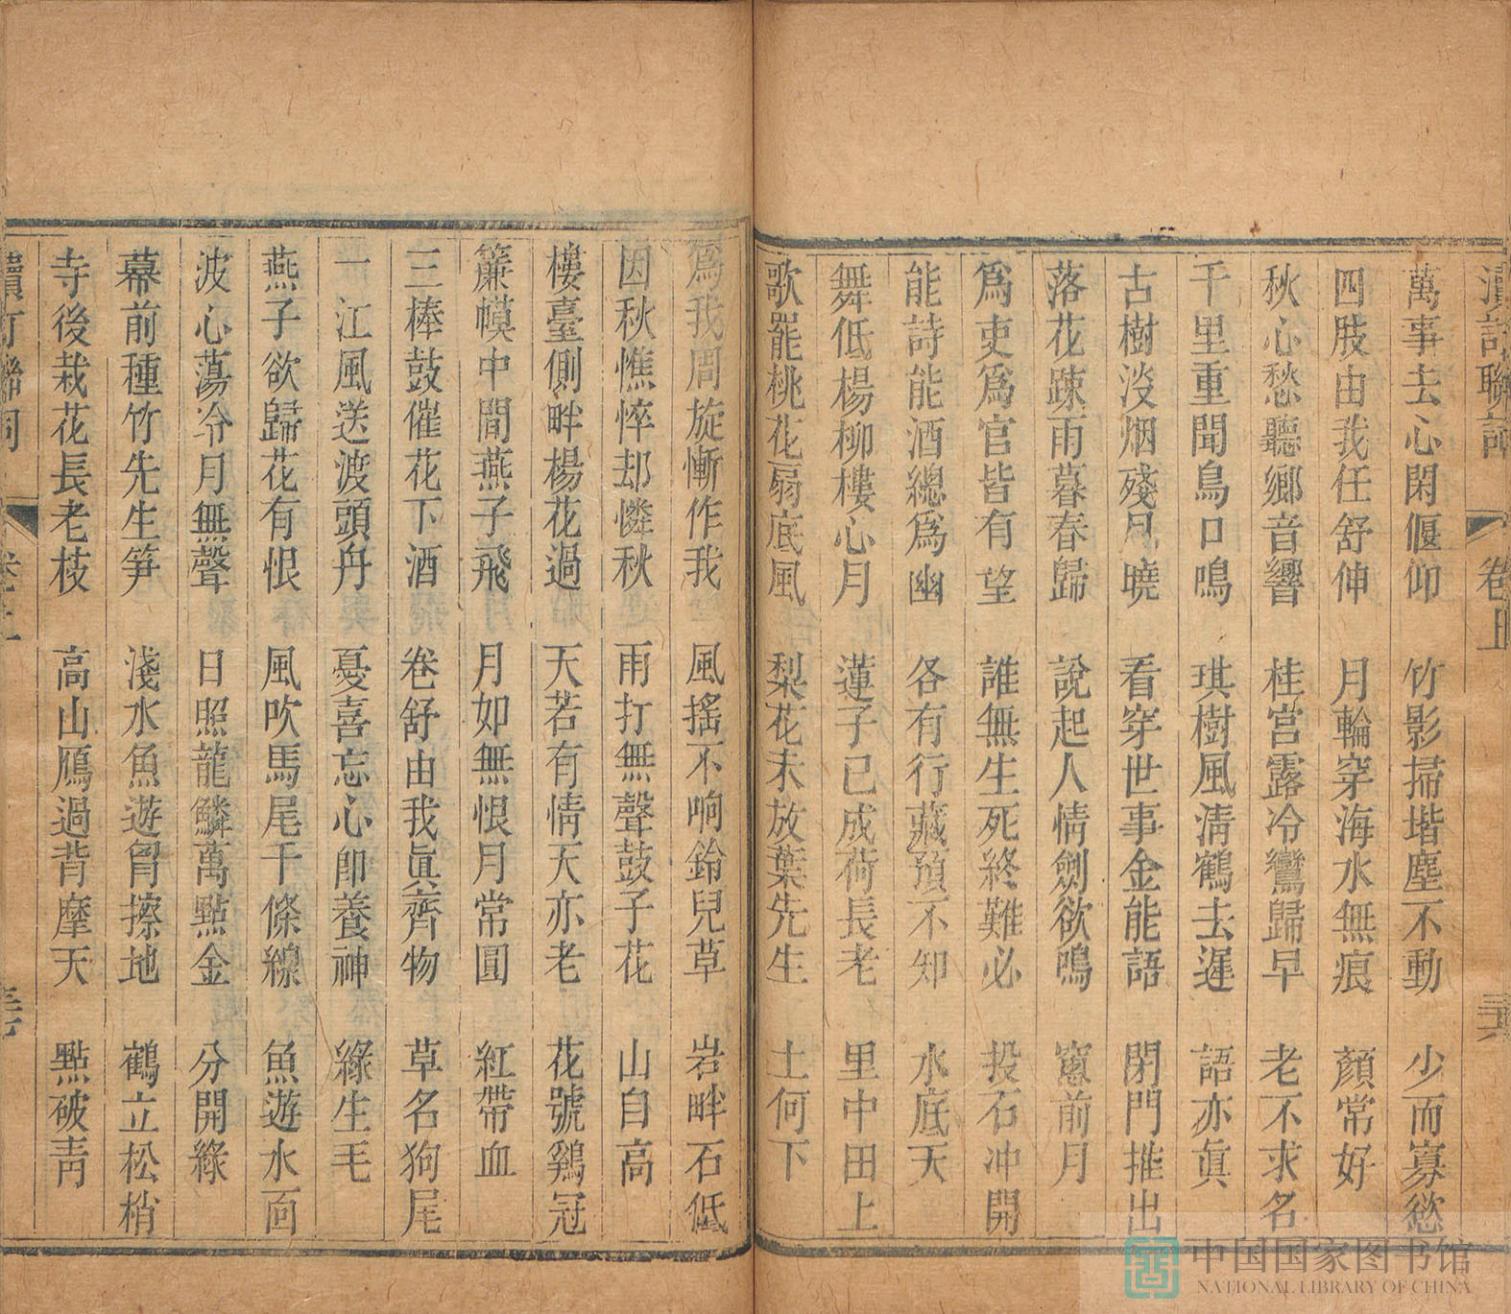 卷上
萬事去心閑偃仰 竹影掃堦塵不動 少而寡慾
四肢由我任舒伸 月輪穿海水無痕 顏常好
秋心愁聽鄉音響 桂宮露冷鸞歸早 老不求名
千里重聞鳥口鳴 琪樹風淸鶴去遲 語亦眞
古樹淡烟殘月曉 看穿世事金能語 閉門推出
落花疎雨暮春歸 說起人情劍欲鳴 窻前月
爲吏爲官皆有望 誰無生死終難必 投石冲開
能詩能酒總爲幽 各有行藏預不知 水底天
舞低楊柳樓心月 蓮子已成荷長老 里中田上
歌罷桃花扇底風 梨花未放葉先生 土何下
爲我周旋慚作我 風搖不响鈴兒草 岩畔石低
因秋憔悴却憐秋 雨打無聲鼓子花 山自高
樓臺側畔楊花過 天若有情天亦老 花號鷄冠
簾幙中間燕子飛 月如無恨月常圓 紅帶血
三棒鼓催花下酒 卷舒由我眞齊物 草名狗尾
一江風送渡頭舟 憂喜忘心卽養神 綠生毛
燕子欲歸花有恨 風吹馬尾千條線 魚遊水面
波心蕩冷月無聲 日照龍鱗萬點金 分開綠
幕前種竹先生笋 淺水魚遊胷擦地 鶴立松梢
寺後栽花長老枝 高山鴈過背摩天 點破靑
中国国家图书馆
NATIONAL LIBRARY OF CHINA